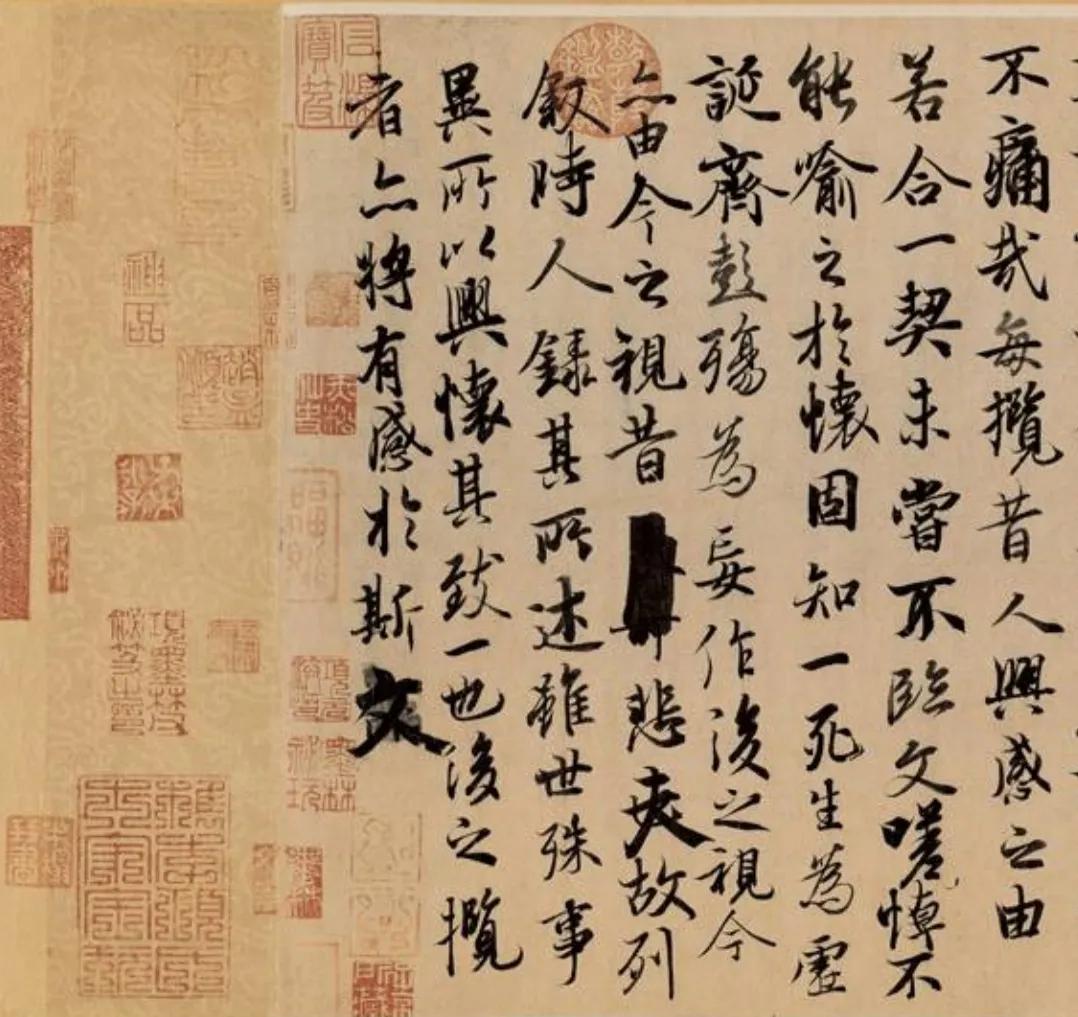 不痛哉每攬昔人興感之由
若合一契未嘗不臨文嗟悼不
能喻之於懷固知一死生為虛
誕齊彭殤為妄作後之視今
亦由今之視昔悲夫故列
敘時人錄其所述雖世殊事
異所以興懷其致一也後之攬
者亦將有感於斯文
神品
項墨林父
秘笈之印